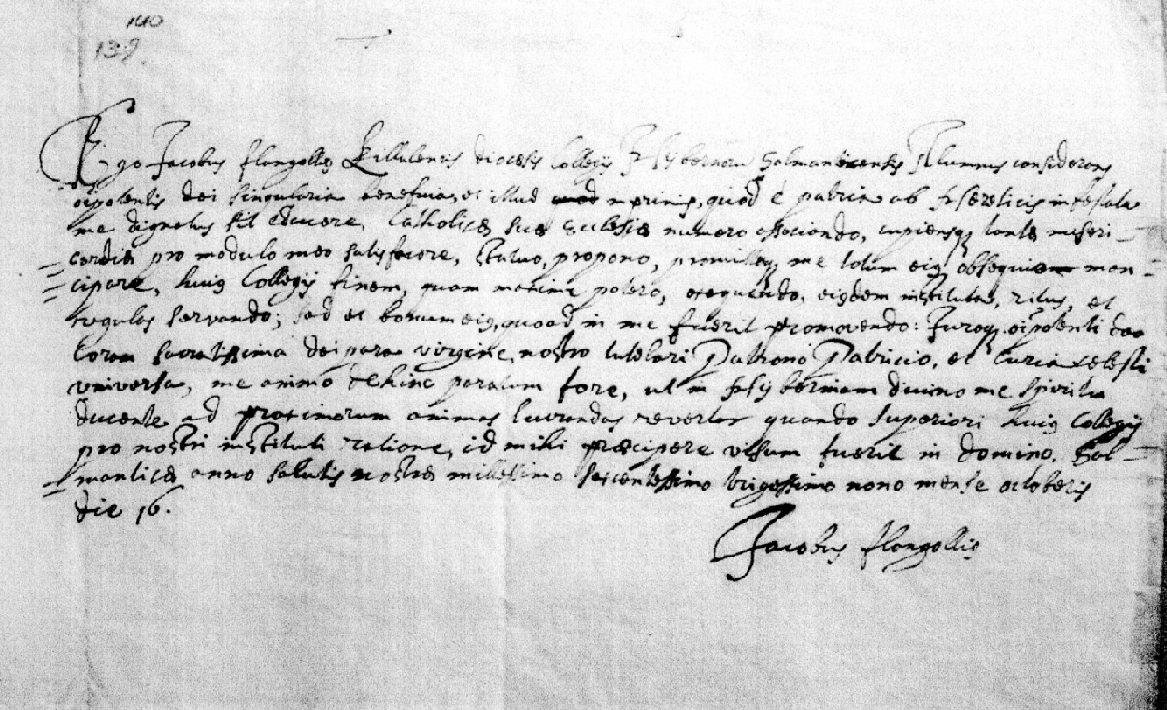 140
139.
Ego Jacobus flongallus Killalensis diocesis Collegij Hybernorum Salmanticensis Alumnus considerans
oipotentis dei singularia beneficia, et illud in primis, quod è patria ab hæreticis infestata
me dignatus sit educere, Catholicæ suæ Ecclesiæ numero associando, cupiensq tantæ miseri-
cordiæ pro modulo meo satisfacere, statuo, propono, promittoq me totum eiq obsequio man-
cipare, huiq Collegij finem, quam maxime potero, exequendo, eiqdem instituta, ritus, et
regulas servando; sed et bonum eiq, quoad in me fuerit promovendo: Juroq oipotenti deo
Coram sacratissima deipara virgine, nostro tutelari Patrono Patricio, et Curia celesti
universa, me animo dehinc paratum fore, ut in Hyberniam divino me spiritu
ducente ad proximorum animas lucrandas revertar quando superiori huiq Collegij
pro nostri instituti ratione, id mihi præcipere visum fuerit in domino. Sal-
manticæ anno salutis nostræ millesimo sexcentessimo vigessimo nono mense octobris
die 16.
Jacobus flongallus